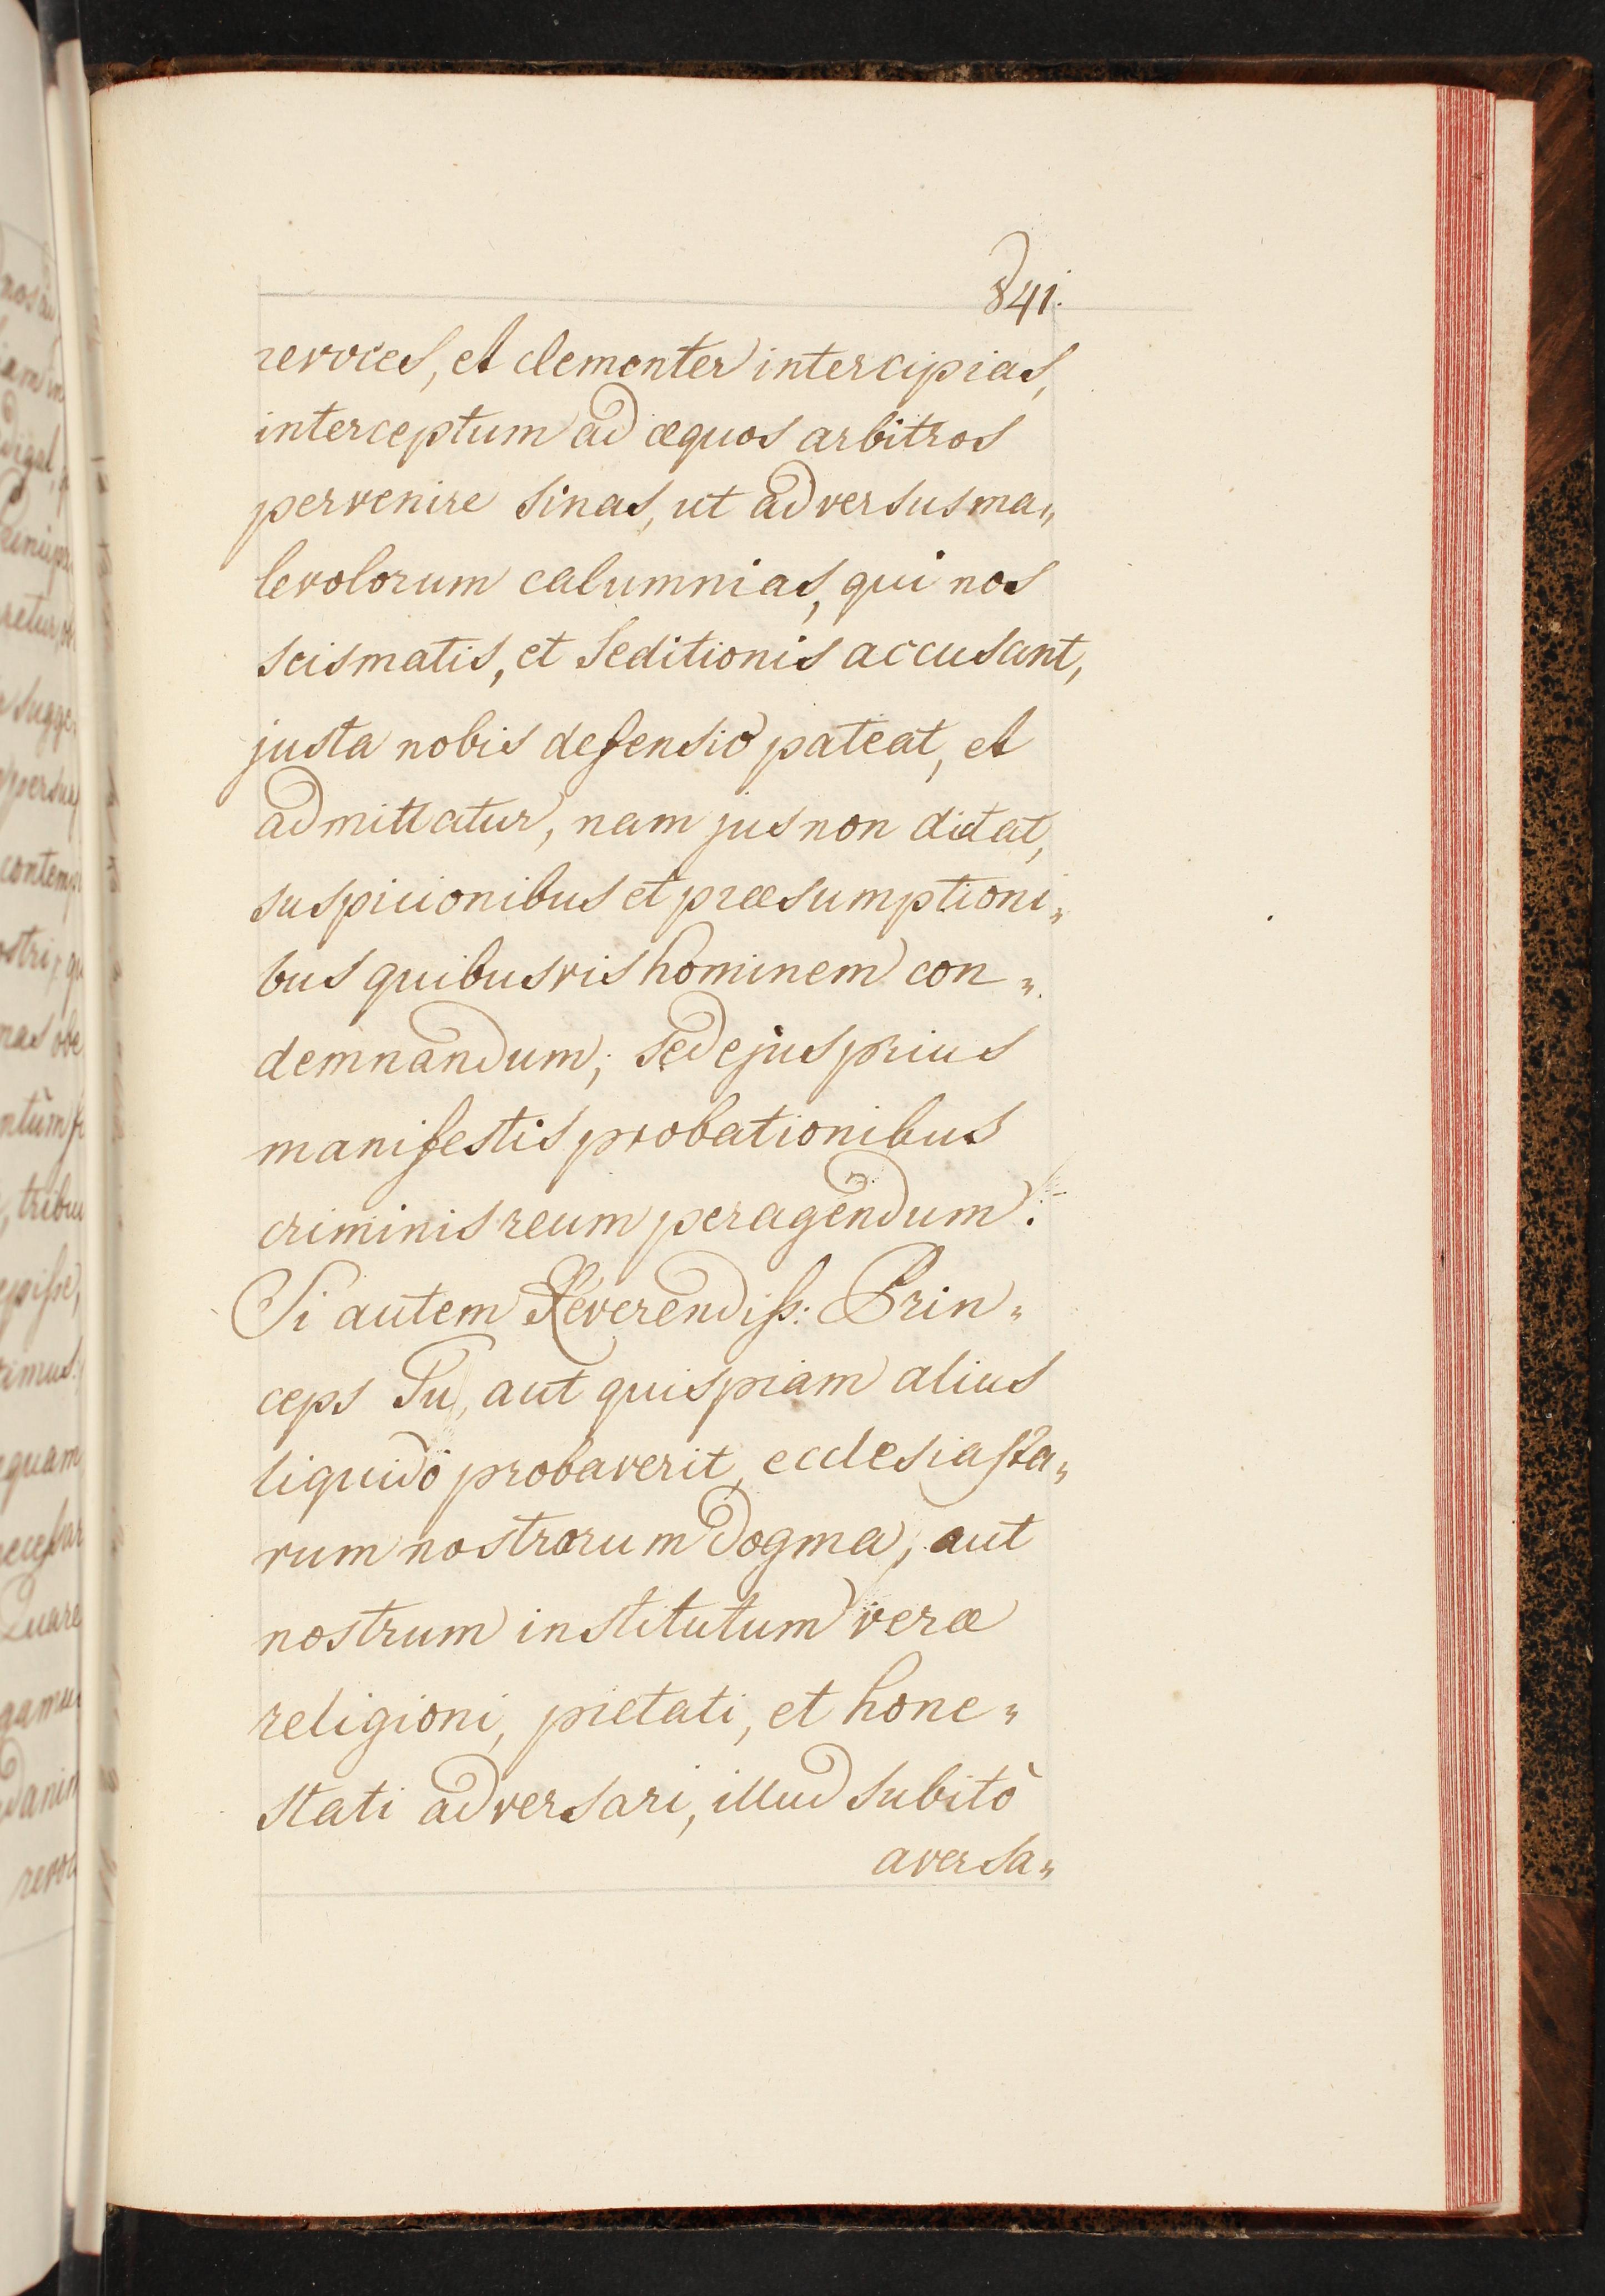 841.
revoces, et clementer intercipias,
interceptum ad æquos arbitros
pervenire sinas, ut adversus ma„
levolorum calumnias, qui nos
scismatis, et Seditionis accusant,
justa nobis defensio pateat, et
admittatur, nam jus non dictat,
suspicionibus et præsumptioni„
bus quibusvis hominem con„
demnandum; sed ejus prius
manifestis probationibus
criminis reum peragendum.
Si autem Reverendiss: Prin„
ceps Tu, aut quispiam alius
liquidò probaverit, ecclesiasta„
rum nostrorum dogma, aut
nostrum institutum veræ
religioni, pietati, et hone„
stati adversari, illud subitò
aversa„